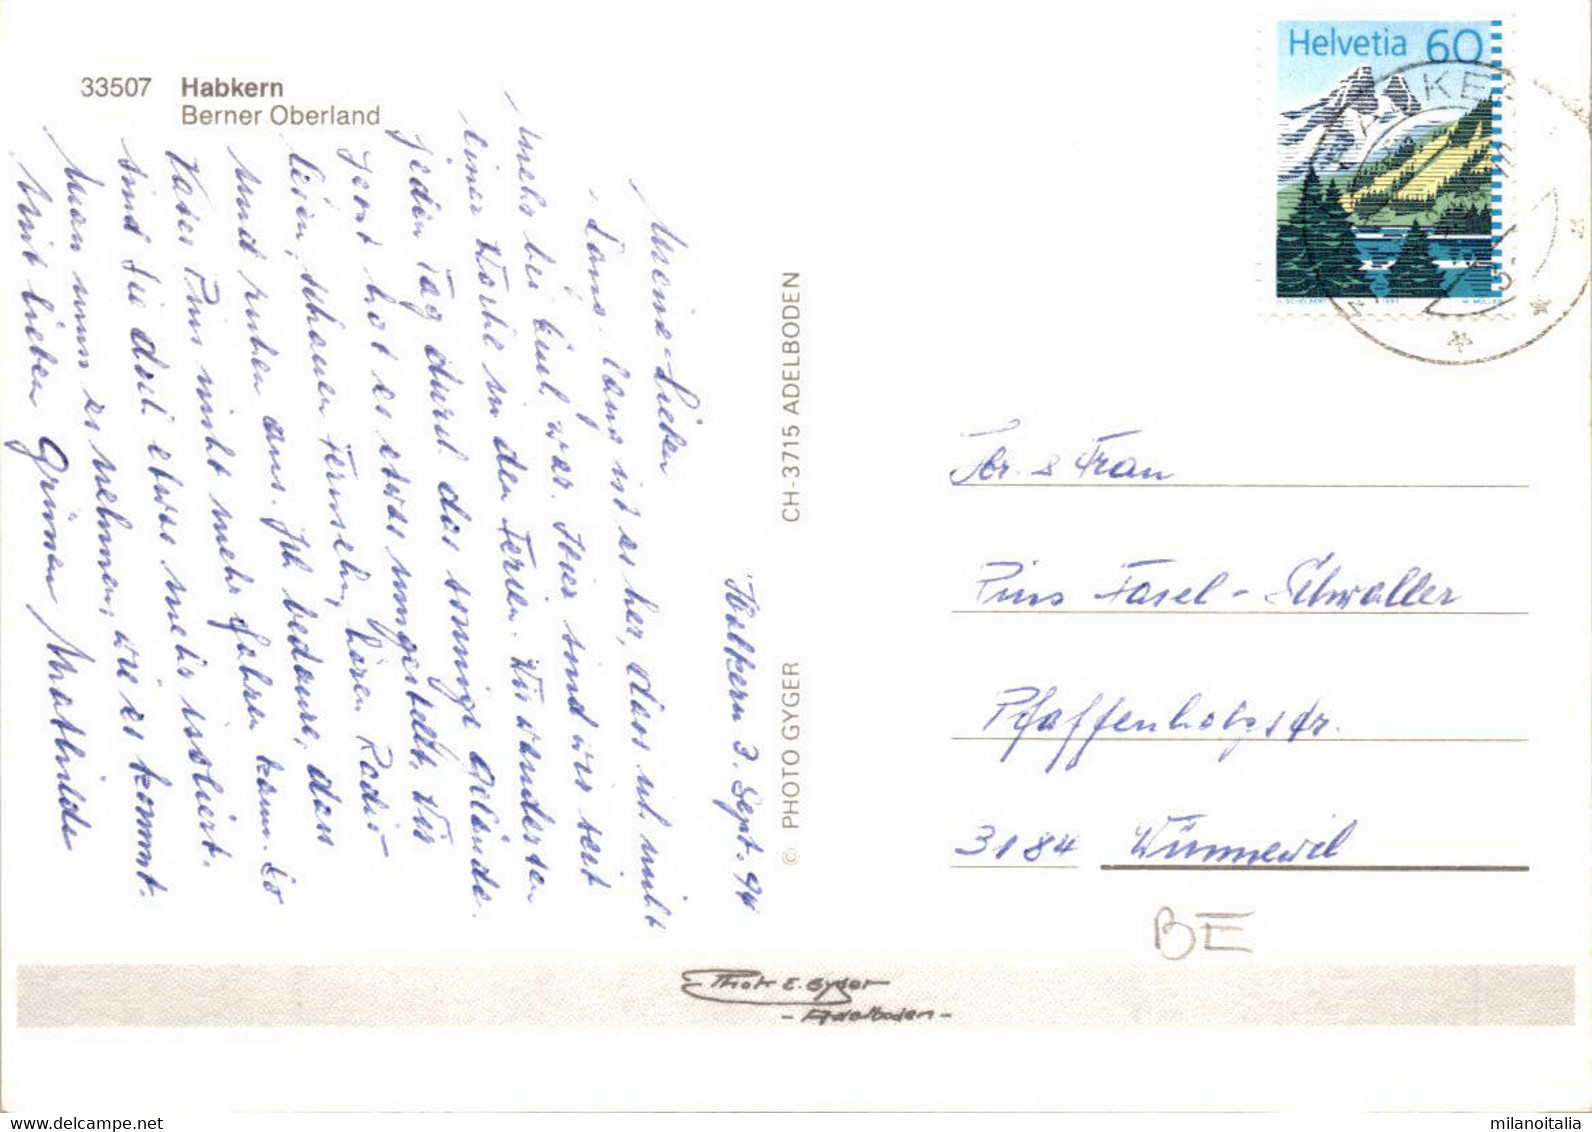 33507 Habkern
Berner Oberland
Helvetia 60
Habkern 3. Sept. 94
Meine Lieben
Lang, lang ist es her, dass ich nicht
mehr bei Euch war. Hier sind wir seit
einer Woche in den Ferien. Wir wanderten
jeden Tag durch das sonnige Gelände.
Jetzt hat es etwas umgestellt. Wir
lesen, schauen Fernseh, hören Radio
und ruhen aus. Ich bedaure, dass
Vater Pius nicht mehr fahren kann. So
sind Sie doch etwas mehr isoliert.
Man muss es nehmen, wie es kommt.
Mit lieben Grüssen Mathilde
CH-3715 ADELBODEN
© PHOTO GYGER
Hr. & Frau
Pius Fasel-Schwaller
Pfaffenholzstr.
3184 Wünnewil
BE
Photo E. Gyger
- Adelboden -
milanoitalia